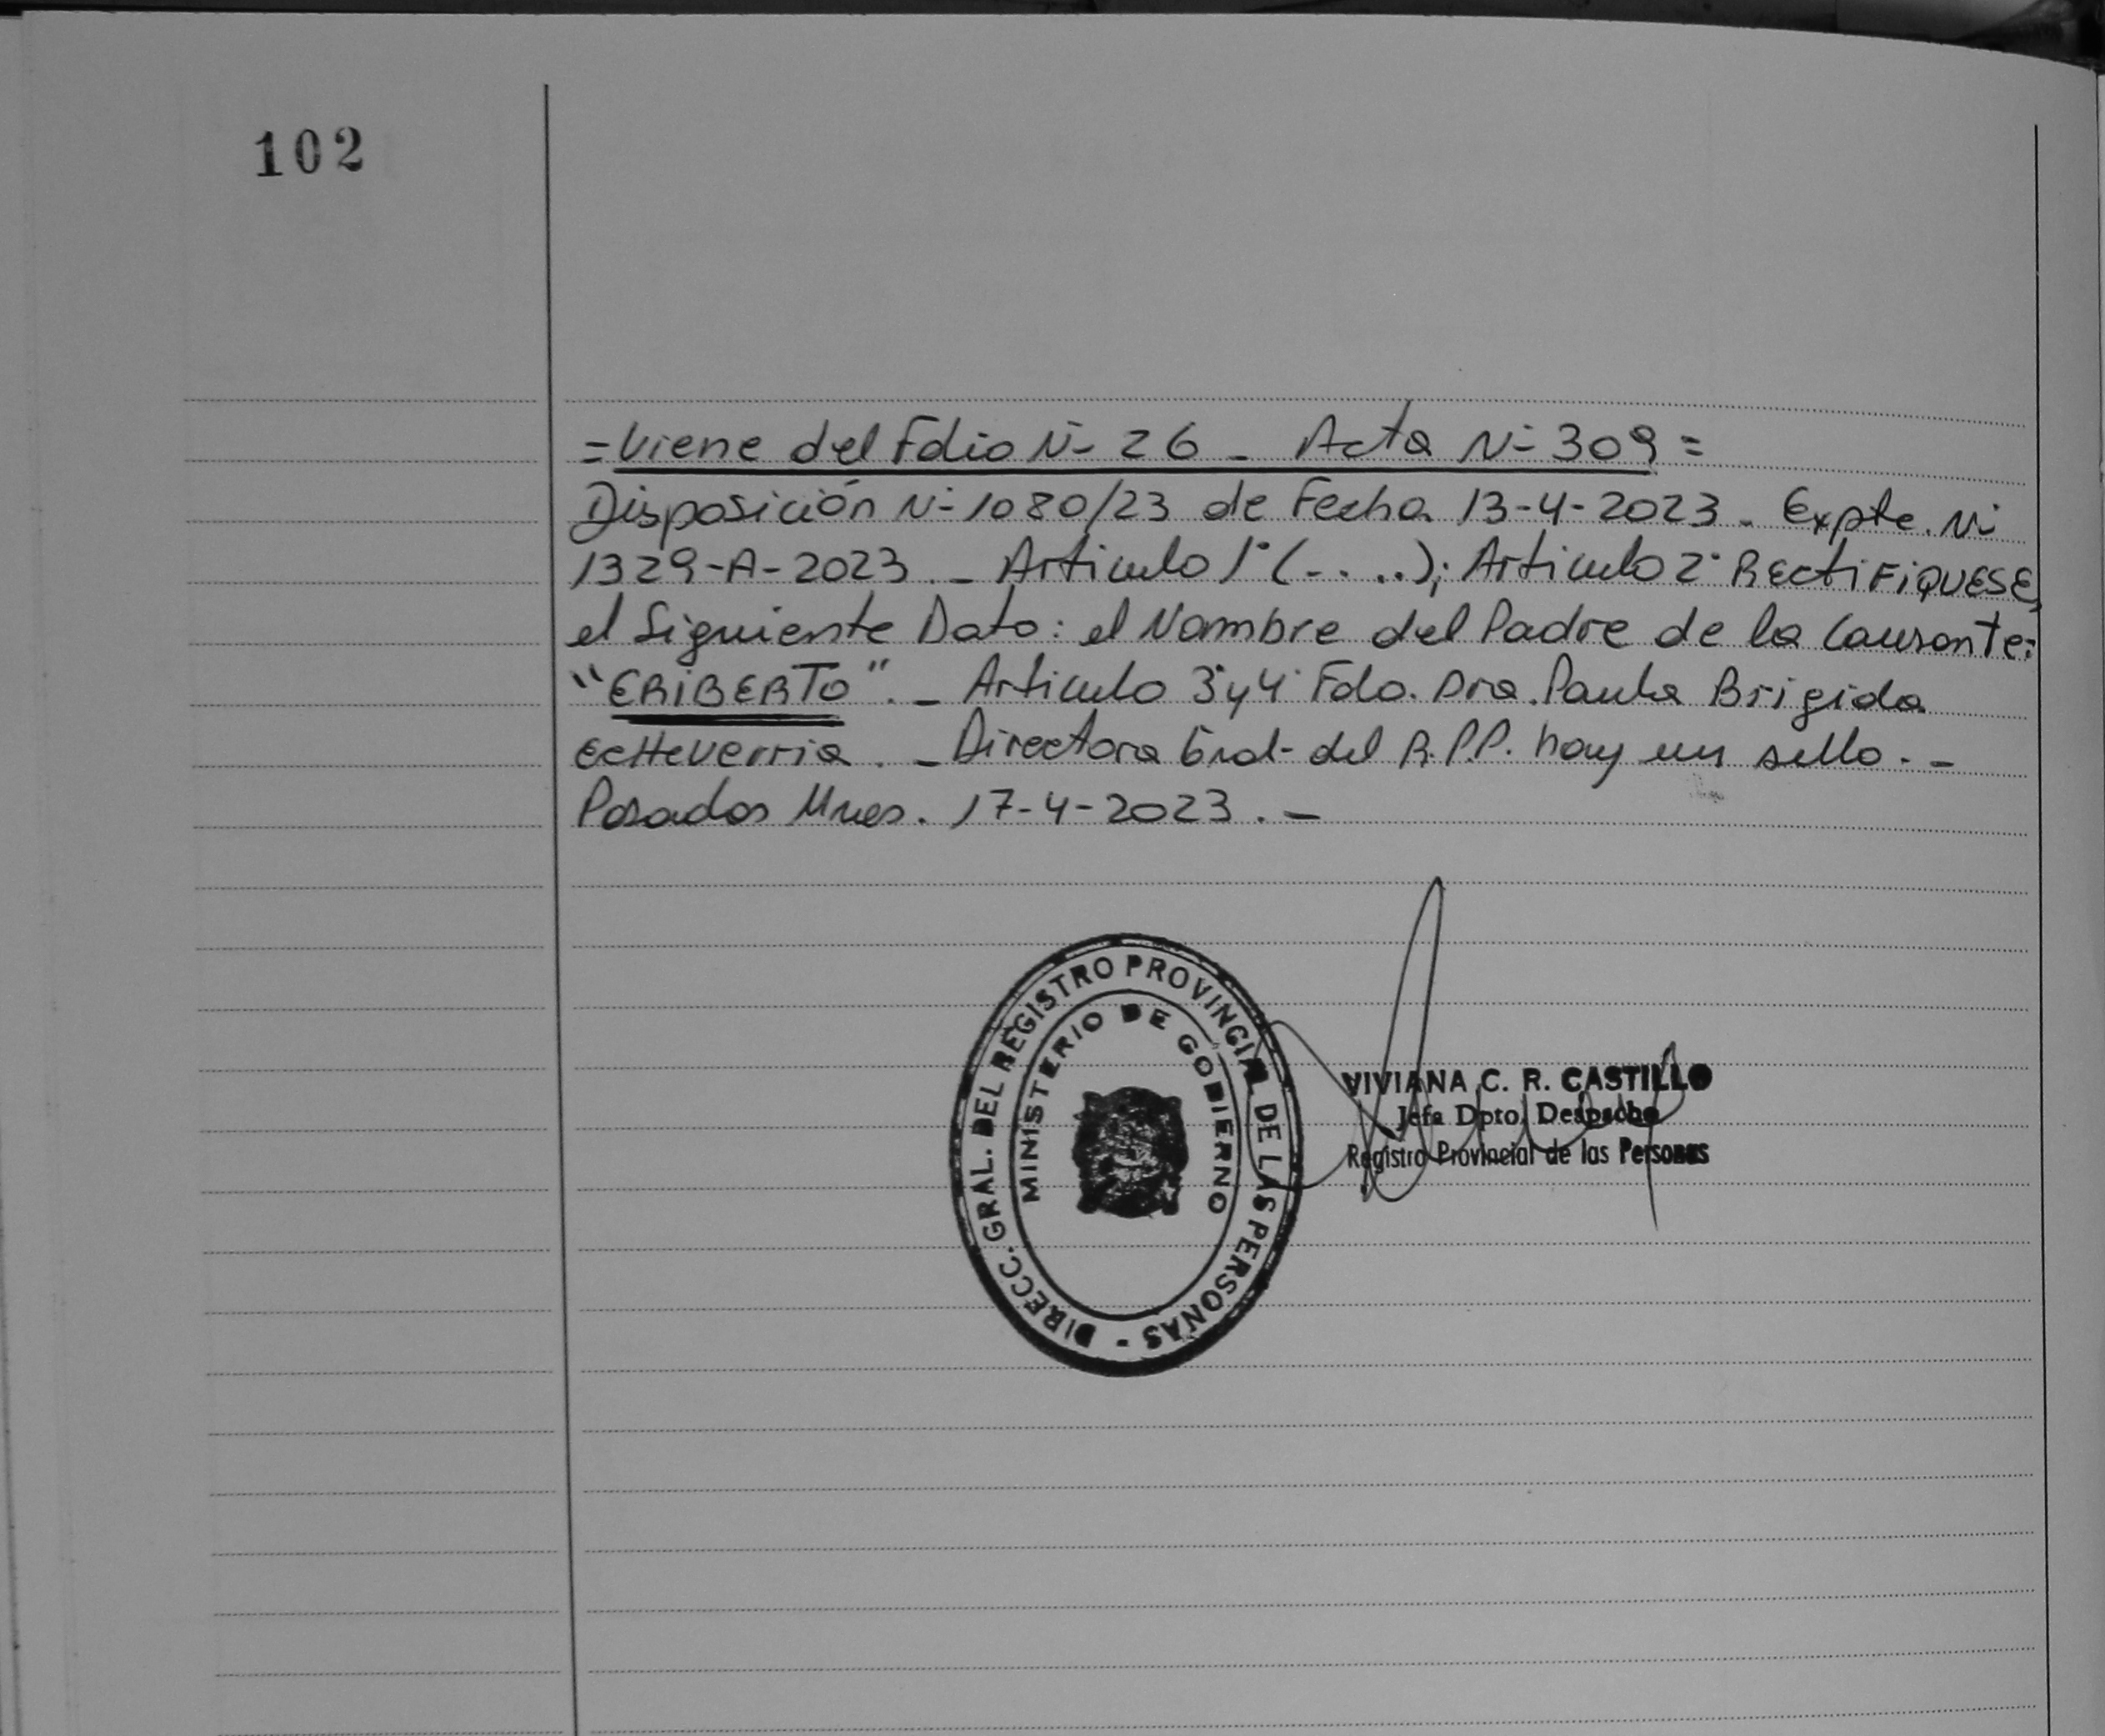 102
=Viene del Folio N- 26 - Acta N- 309=
Disposición N-1080/23 de Fecha 13-4-2023 - Expte. N-
1329-A-2023 .- Articulo 1° (- . ..); Articulo 2° RECTIFIQUESE,
el Siguiente Dato: el Nombre del Padre de la Causante:
"ERIBERTO" .- Articulo 3°y4° Fdo. Dra. Paula Brigida
Echeverria . - Directora Gral- del R.P.P. hay un sello . -
Posadas Mnes. 17-4-2023 . -
DIRECC. GRAL. DEL REGISTRO PROVINCIAL DE LAS PERSONAS -
MINISTERIO DE GOBIERNO
VIVIANA C. R. CASTILLO
Jefa Dpto. Despacho
Registro Provincial de las Personas